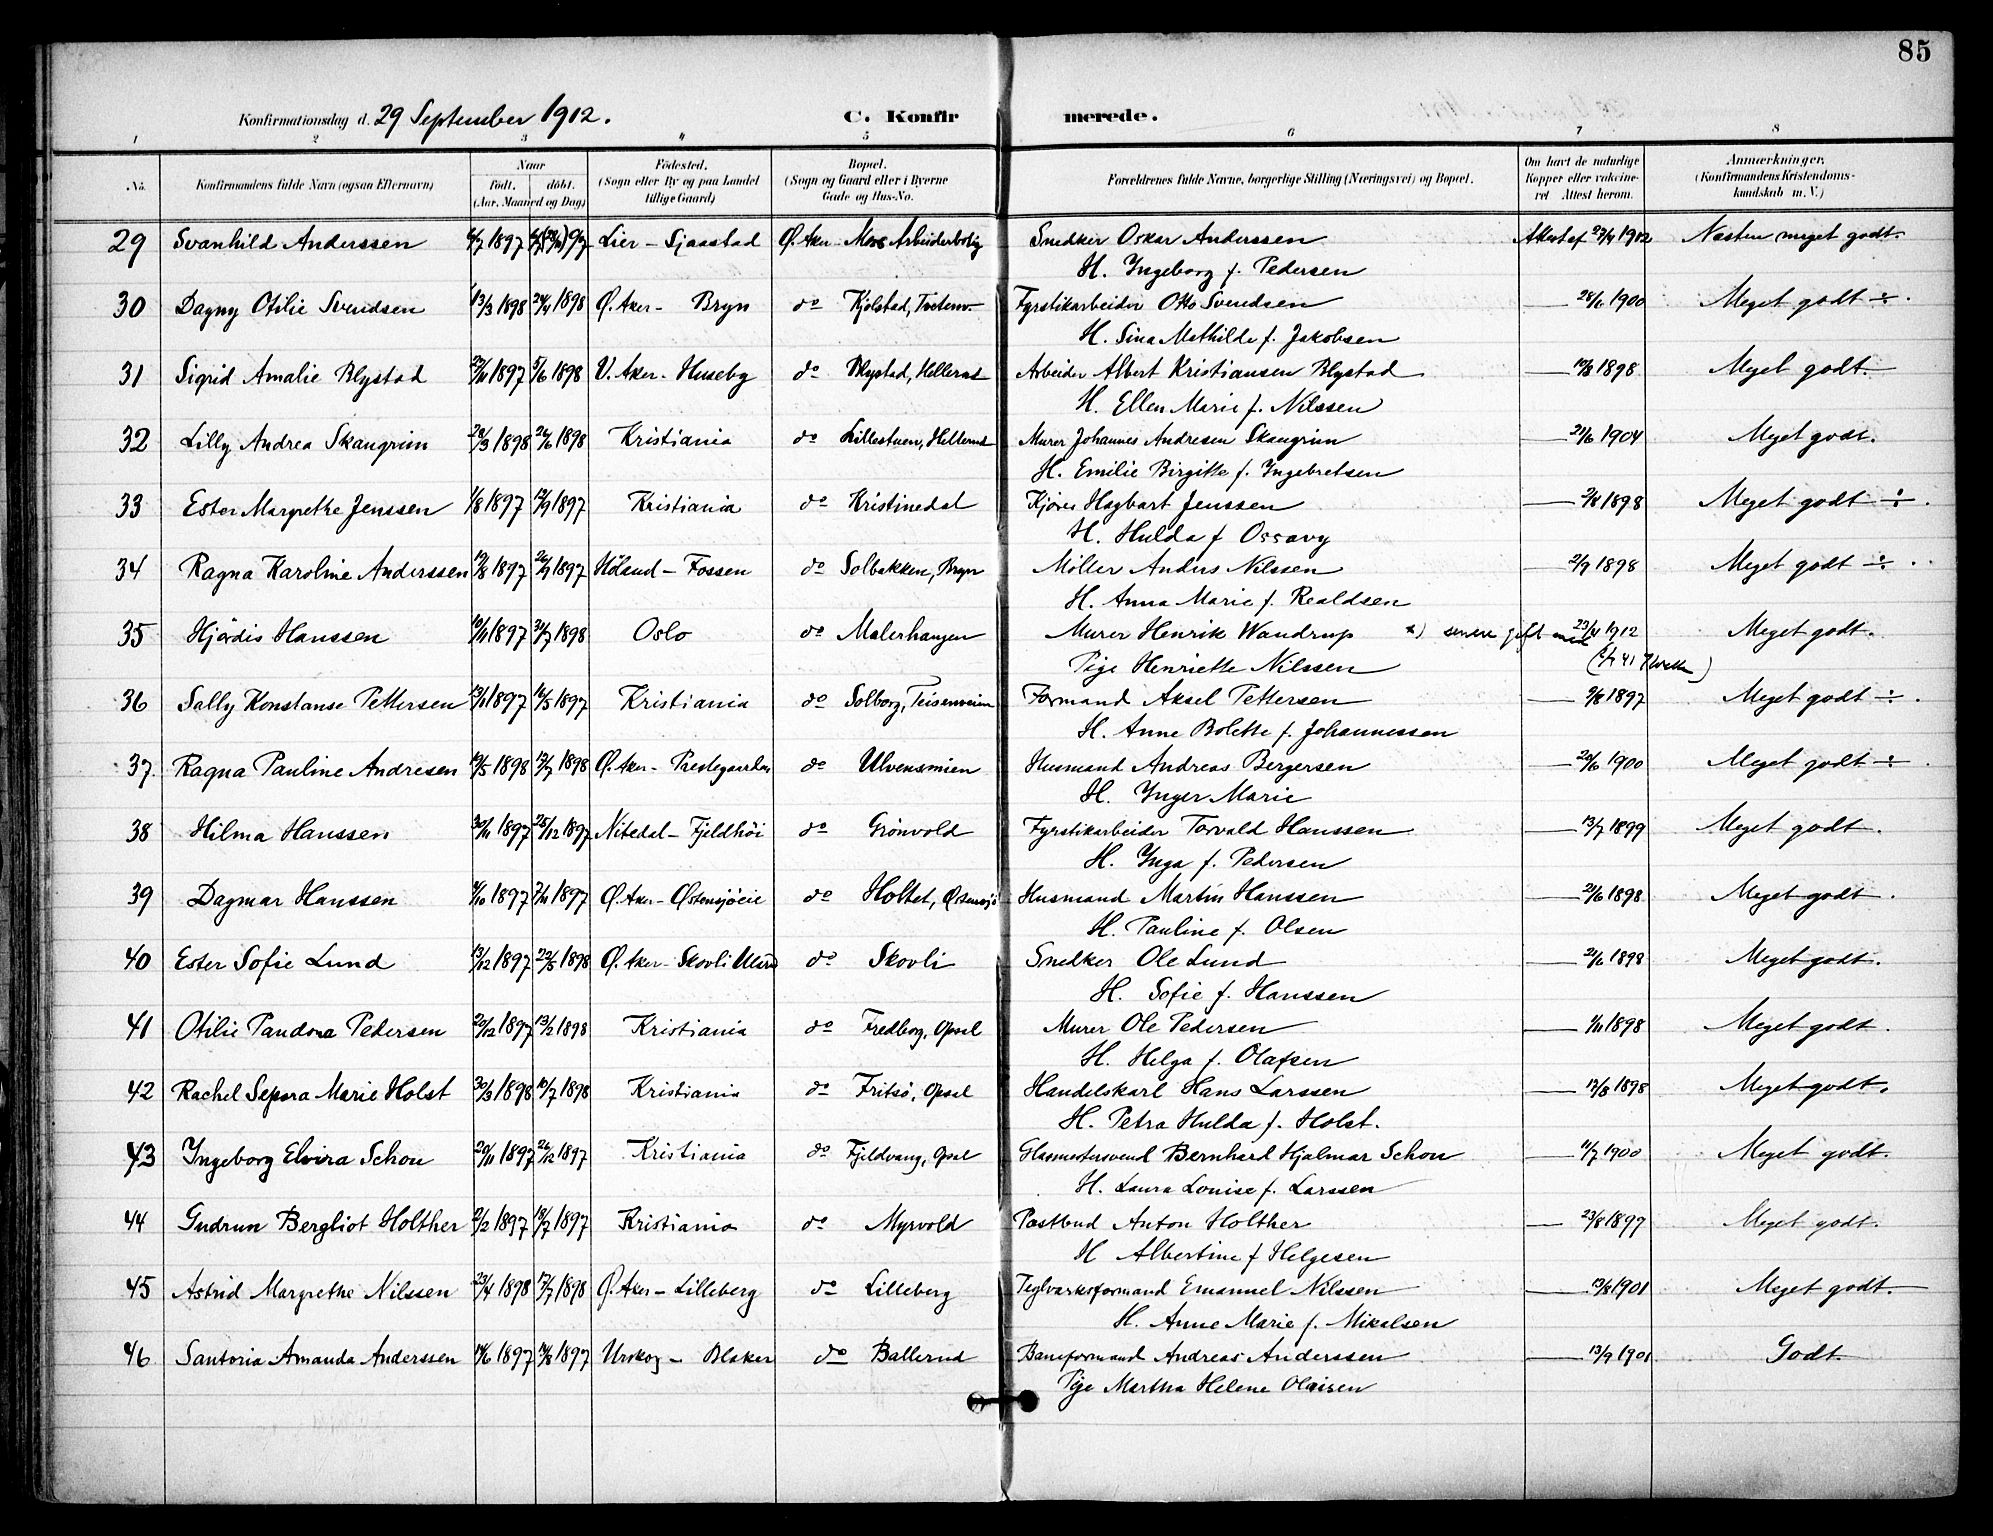 85
Konfirmationsdag d. 29 September 1912. C. Konfirmerede.
1 2 3 4 5 6 7 8
No. Konfirmandens fulde Navn (ogsaa Efternavn) Naar født. døbt. (Aar, Maaned og Dag) Fødested. (Sogn eller By og paa Landet tillige Gaard) Bopæl. (Sogn og Gaard eller i Byerne Gade og Hus-No. Forældrenes fulde Navne, borgerlige Stilling (Næringsvei) og Bopæl. Om havt de naturlige Kopper eller vaccineret Attest herom. Anmærkninger. (Konfirmandens Kristendomskundskab m. V.)
29 Svanhild Anderssen 1897 Lier - Sjaastad Ø. Aker Mos Arbeiderbolig Snedker Oskar Anderssen 1912 Næsten meget godt.
H. Ingeborg f. Pedersen
30 Dagny Otilie Svendsen 13/3 1898 24/4 1898 Ø. Aker - Bryn do Kjølstad, Tvetenv. Fyrstikarbeider Otto Svendsen — 28/6 1900 Meget godt ÷.
H. Sina Mathilde f. Jakobsen
31 Sigrid Amalie Blystad 1897 5/6 1898 V. Aker - Huseby do Blystad, Hellerud Arbeider Albert Kristiansen Blystad — 1898 Meget godt.
H. Ellen Marie f. Nilssen
32 Lilly Andrea Skaugrim 28/3 1898 26/6 1898 Kristiania do Lillestuen, Hellerud Murer Johannes Andresen Skaugrim — 21/6 1904 Meget godt.
H. Emilie Birgitte f. Ingebretsen
33 Ester Margrethe Jenssen 1/8 1897 12/9 1897 Kristiania do Kristinedal Kjører Hagbart Jenssen — 1898 Meget godt ÷.
H. Hulda f. Ossavy
34 Ragna Karoline Anderssen 12/8 1897 26/9 1897 Høland - Fossen do Solbakken, Bryn Møller Anders Nilssen — 2/9 1898 Meget godt ÷.
H. Anna Marie f. Realdsen
35 Hjørdis Hanssen 10/11 1897 31/7 1898 Oslo do Malerhaugen Murer Henrik Wandrup x) senere gift med 23/4 1912 Meget godt.
Pige Henriette Nilssen
36 Sally Konstanse Pettersen 1897 16/5 1897 Kristiania do Solborg, Teisenveien Formand Aksel Pettersen — 9/8 1897 Meget godt ÷.
H. Anne Bolette f. Johannessen
37. Ragna Pauline Andresen 12/5 1898 17/7 1898 Ø. Aker - Prestegaarden do Ulvensmien Husmand Andreas Bergersen — 20/6 1900 Meget godt ÷.
H. Inger Marie
38 Hilma Hanssen 30/11 1897 28/12 1897 Nitedal - Fjeldhøi do Grønvold Fyrstikarbeider Torvald Hanssen — 13/7 1899 Meget godt.
H. Inga f. Pedersen
39 Dagmar Hanssen 1897 7/11 1897 Ø. Aker - Østensjøeie do Holtet, Østensjø Husmand Martin Hanssen — 21/6 1898 Meget godt.
H. Pauline f. Olsen
40 Ester Sofie Lund 13/12 1897 22/5 1898 Ø. Aker - Skovli do Skovli Snedker Ole Lund — 21/6 1898 Meget godt.
H. Sofie f. Hanssen
41 Otilie Pandora Pedersen 20/12 1897 13/2 1898 Kristiania do Fredborg, Opsal Murer Ole Pedersen — 1898 Meget godt.
H. Helga f. Olafsen
42 Rachel Sepora Marie Holst 30/3 1898 10/7 1898 Kristiania do Fritsø, Opsal Handelskarl Hans Larssen — 17/8 1898 Meget godt.
H. Petra Hulda f. Holst.
43 Ingeborg Elvira Schou 20/11 1897 26/12 1897 Kristiania do Fjeldvang, Opsal Glasmestersvend Bernhard Hjalmar Schou — 11/7 1900 Meget godt.
H. Laura Louise f. Larssen
44 Gudrun Bergliot Holther 21/2 1897 18/7 1897 Kristiania do Myrvold Postbud Anton Holther — 23/8 1897 Meget godt.
H. Albertine f. Helgesen
45 Astrid Margrethe Nilssen 23/4 1898 17/7 1898 Ø. Aker - Lilleberg do Lilleberg Teglværksformand Emanuel Nilssen — 13/8 1901 Meget godt.
H. Anne Marie f. Mikalsen
46 Santoria Amanda Anderssen 14/6 1897 1897 Urskog - Blaker do Ballerud Baneformand Andreas Anderssen — 13/9 1901 Godt.
Pige Martha Helene Olaisen